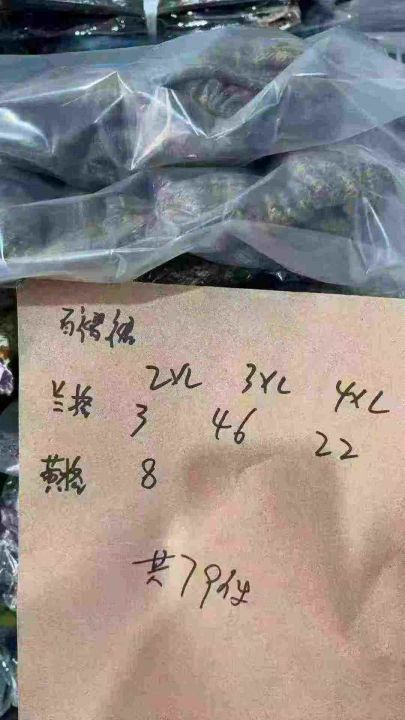 百褶裙
2XL 3XL 4XL
兰格 3 46 22
黄格 8
共79件